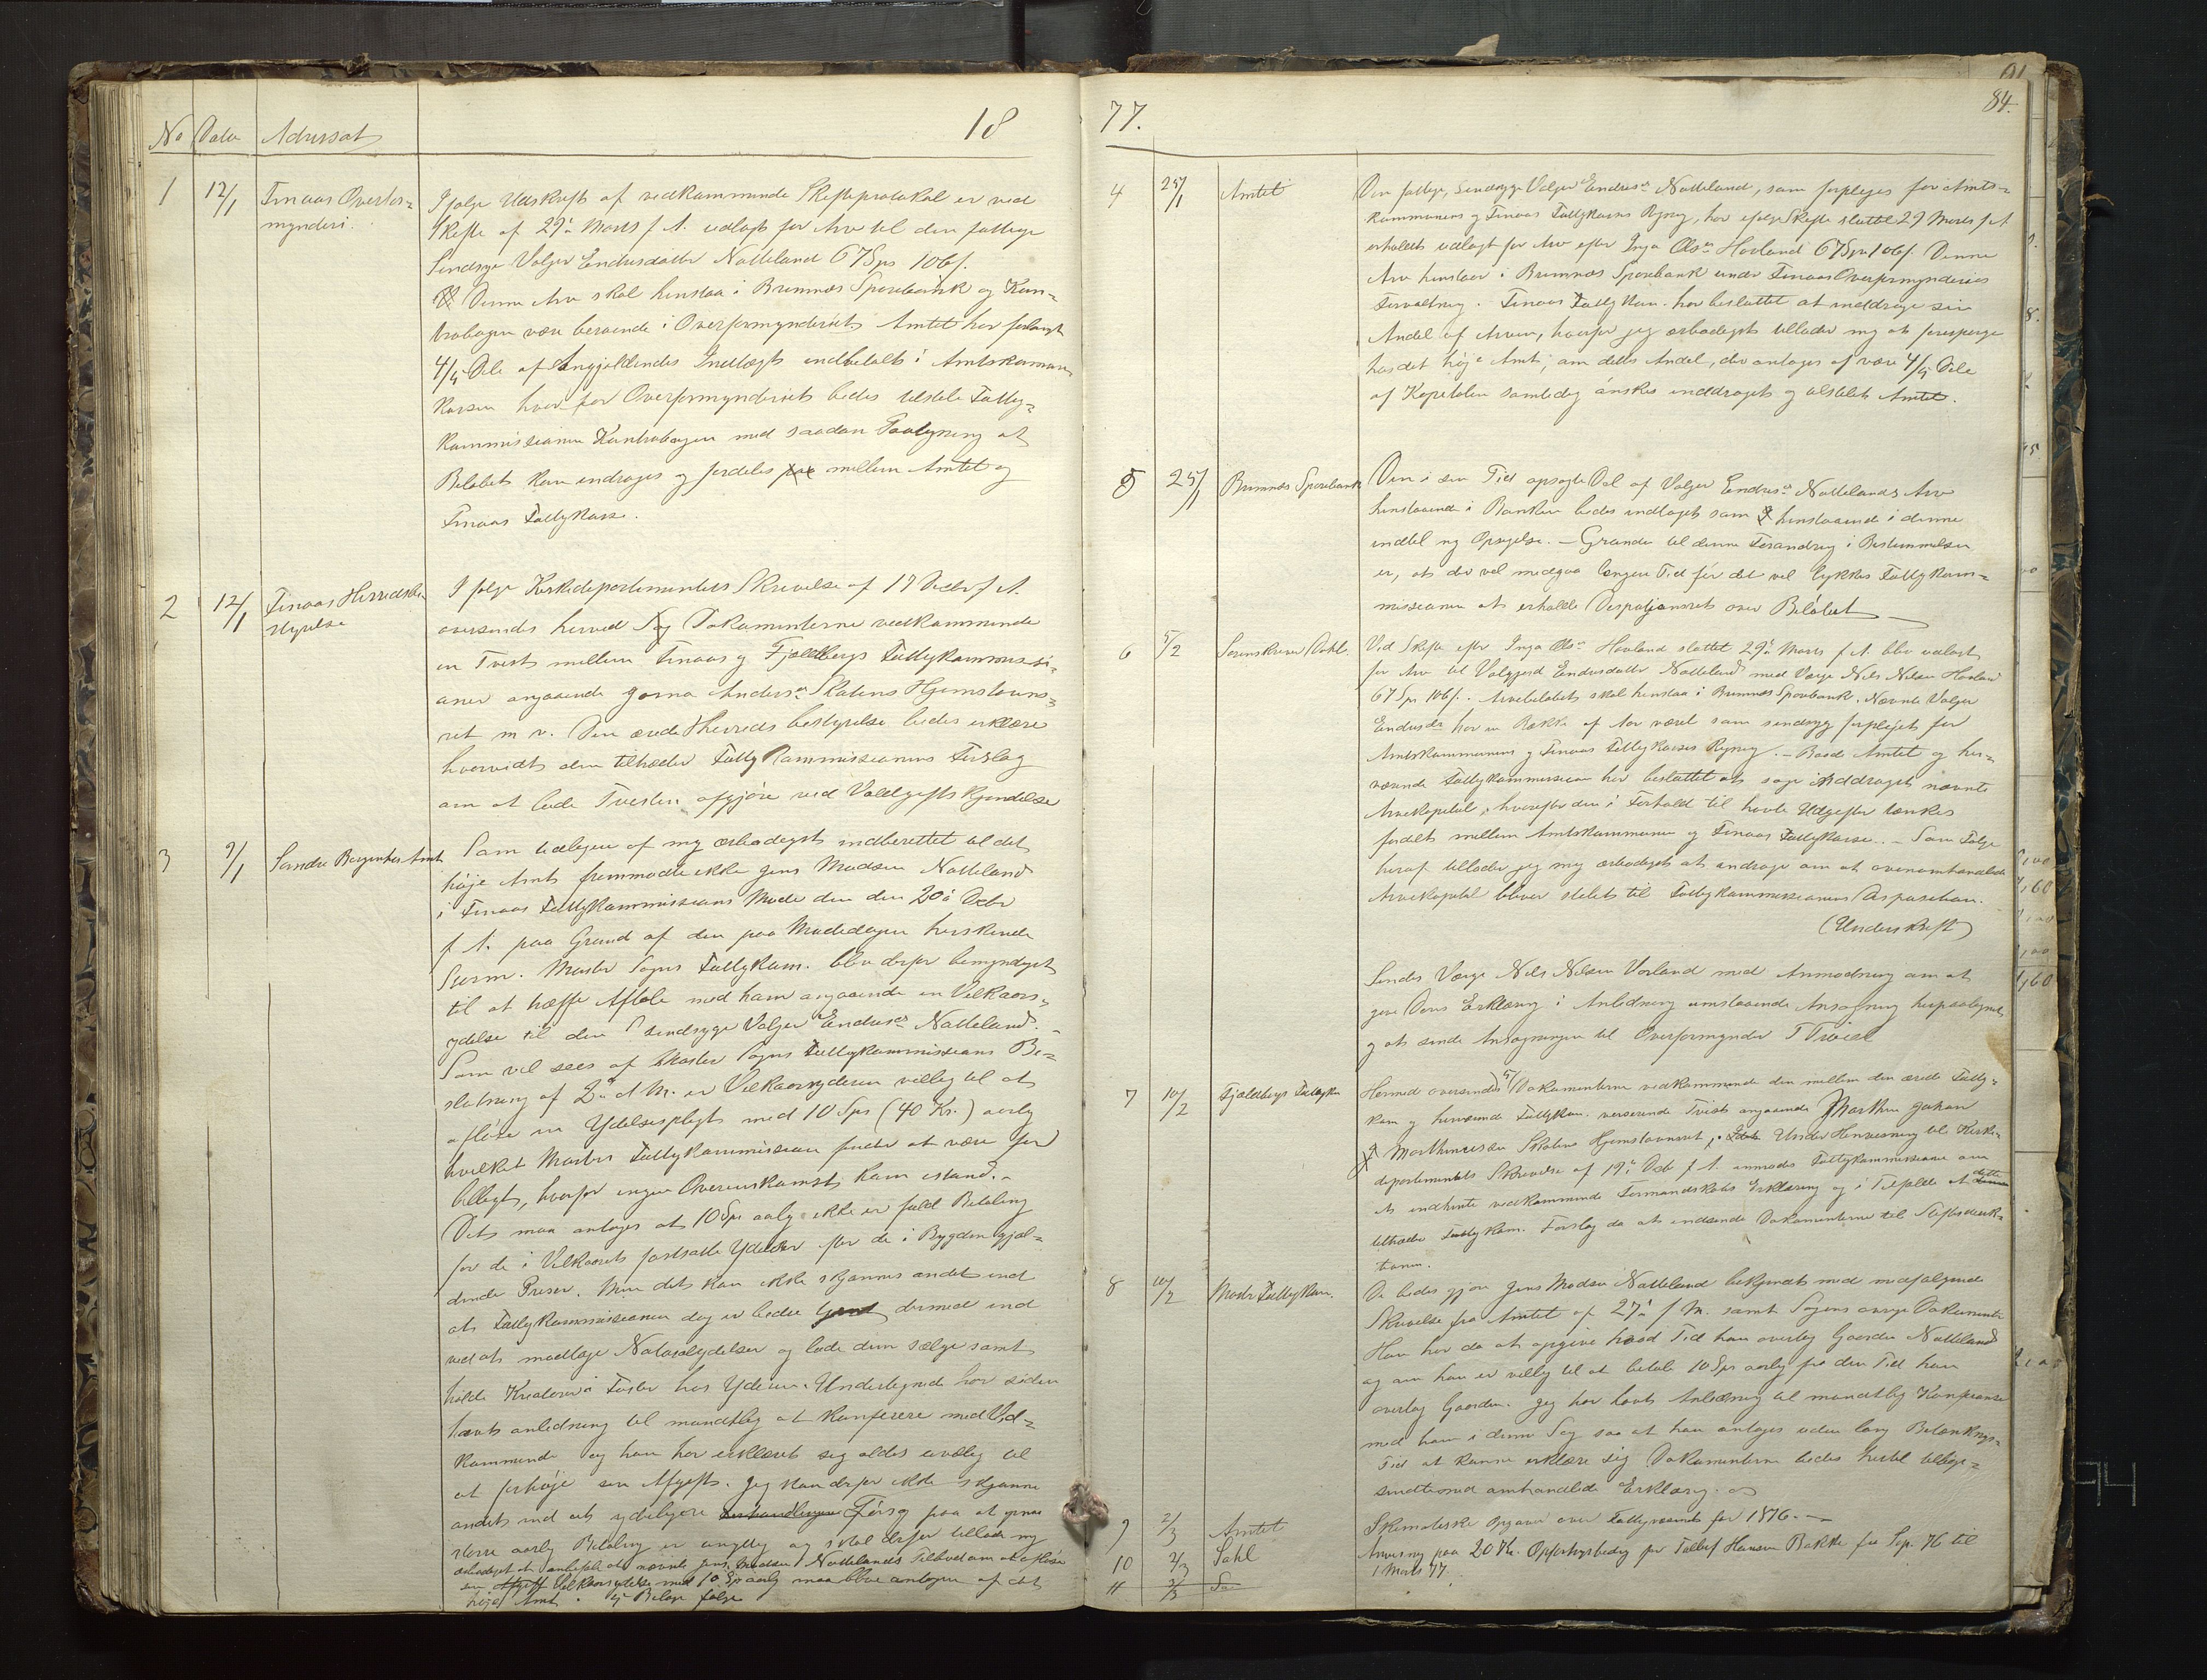 No Dato Adressat
18
1 12/1 Finaas Overfor=
mynderi.
Ifølge Udskrift af vedkommende Skifteprotokol er ved
Skifte af 29de Marts f A. udlagt for Arv til den fattige
Sindsyge Valger Endresdatter Natteland 67 Sps 106 s.
Denne Arv skal henstaa i Bremnæs Sparebank og Kon=
trabogen være beroende i Overformynderiet. Amtet har forlangt
4/5 Dele af Angjældendes Indlægt indbetalt i Amtskommunens
Kassen hvorfor Overformynderiet bedes tilstille Fattig=
kommissionen Kontrabogen med saadan Paategning at
Beløbet kan inddrages og fordeles mellem Amtet og
Finaas Fattigkasse.
2 12/1 Finaas Herredsbe-
styrelse
I følge Kirkedepartementets Skrivelse af 19 Decbr f A.
oversendes herved Dokumenterne vedkommende
en Tvist mellem Finaas og Fjeldbergs Fattigkommissi=
oner angaaende Anders Hjemstavns=
ret m v. Den ærede Herreds bestyrelse bedes erklære
hvorvidt den tiltræder Fattigkommissionens Forslag
om at lade Tvisten afgjøre ved Voldgiftskjendelse
3 9/1 Søndre Bergenhus Amt
Som tidligere af mig ærbødigst indberettet til det
høje Amt fremmødte ikke Jens Madsen Natteland
i Finaas Fattigkommissions Møde den 20de Decbr
f A. paa Grund af den paa Mødedagen herskende
Storm. Moster Sogns Fattigkom. blev derfor bemyndiget
til at træffe Aftale med ham angaaende en Vilkaars=
ydelse til den sindsyge Valger Endresdr Natteland. -
Som vil sees af Moster Sogns Fattigkommissions Be=
slutning af 2den d M. er Vilkaarsyderen villig til at
afløse sin Ydelsespligt med 10 Sps (40 Kr.) aarlig
hvilket Moster Fattigkommission finder at være for
billigt, hvorfor ingen Overenskomst kom istand. -
Det maa antages at 10 Sps aarlig ikke er fuld Betaling
for de i Vilkaaret fastsatte Ydelser for de i Bygden gjæl=
dende Priser. Men det kan ikke skjønnes andet end
at Fattigkommissionen dog er bedre tjent dermed end
ved at modtage Naturalydelser og lade dem sælge samt
holde Kreaturer i Foster hos Yderen. Undertegnede har siden
havt anledning til mundtlig at konferere med Ved=
kommende og han har erklæret sig aldeles uvillig til
at forhøje sin Afgift. Jeg kan derfor ikke skjønne
andet end at yderligere Forsøg paa at opnaa
større aarlig Betaling er unyttig og skal derfor tillade mig
ærbødigst at anbefale at nævnte Jens Madsen Nattelands Tilbud om at afløse
sin Vilkaarsydelse med 10 Sps aarlig maa blive antagen af det
høje Amt. Bilage følge
77.
84.
4 25/1 Amtet
Den fattige, sindsyge Valger Endresdr Natteland, som forpleies for Amts=
kommunens og Finaas Fattigkasses Regning, har ifølge Skifte sluttet 29 Marts f A
erholdt udlagt for Arv efter Inga Olsdr Hovland 67 Sps 106 s. Denne
Arv henstaar i Bremnæs Sparebank under Finaas Overformynderies
Forvaltning. Finaas Fattigkom. har besluttet at inddrage sin
Andel af Arven, hvorfor jeg ærbødigst tillader mig at forespørge
hos det høje Amt, om dets Andel, der antages at være 4/5 Dele
af Kapitalen samtidig ønskes inddraget og tilstillet Amtet.
5 25/1 Bremnæs Sparebank
Den i sin Tid opsagte Del af Valger Endresdr Nattelands Arv
henstaaende i Banken bedes indtaget som henstaaende i denne
indtil ny Opsigelse. - Grunden til denne Forandring i Bestemmelsen
er, at der vil medgaa længere Tid før det vil lykkes Fattigkom=
missionen at erholde Disposjonsret over Beløbet
6 5/2 Sorenskriver Dahl.
Ved Skifte efter Inga Olsdr Hovland sluttet 29de Marts f A. blev udlagt
for Arv til Valgjerd Endresdatter Natteland med Værge Nils Nilsen Hovland
67 Sps 106 s. Arvebeløbet skal henstaa i Bremnæs Sparebank. Nævnte Valger
Endresdr har en Række af Aar været som sindsyg forplejet for
Amtskommunens og Finaas Fattigkasses Regning. - Baade Amtet og her=
værende Fattigkommission har besluttet at søge inddraget nævnte
Arvekapital, hvorefter den i Forhold til havte Udgifter tænkes
fordelt mellem Amtskommunen og Finaas Fattigkasse. - Som Følge
heraf tillader jeg mig ærbødigst at andrage om at ovenomhandlede
Arvekapital bliver stillet til Fattigkommissionens Disposition.
(Underskrift)
Sendes Værge Nils Nilsen Hovland med Anmodning om at
give Deres Erklæring i Anledning omstaaende Ansøgning herpaategnet
og at sende Ansøgningen til Overformynder T Tvieit
7 10/2 Fjeldbergs Fattigkom
Hermed oversendes Dokumenterne vedkommende den mellem den ærede Fattig=
kom og herværende Fattigkom. verserende Tvist angaaende Marthin Johan
Marthinussen Hjemstavnsret. Under Henvisning til Kirke=
departementets Skrivelse af 19de Decbr f A. anmodes Fattigkommissionen om
at indhente vedkommende Formandskabs Erklæring og i Tilfælde af dette
tiltræder Fattigkom. Forslag da at indsende Dokumenterne til Stiftsdirek=
tionen.
8 10/2 Moster Fattigkom.
De bedes gjøre Jens Madsen Natteland bekjendt med medfølgende
Skrivelse fra Amtet af 27de f M. samt Sagens øvrige Dokumenter
Han har da at opgive hvad Tid han overtog Gaarden Natteland
og om han er villig til at betale 10 Sps aarlig fra den Tid han
overtog Gaarden. Jeg har havt Anledning til mundtlig Konferance
med ham i denne Sag saa at han antages uden lang Betænknings=
Tid at kunne erklære sig. Dokumenterne bedes hertil tilbage=
sendte med omhandlede Erklæring.
9 2/3 Amtet
Skematiske Opgaver over Fattigvæsenet for 1876. -
10 2/3 Sahl
Anvisning paa 20 Kr. Opfostringsbidrag for Tollef Hansen Bakke fra Sep. 76 til
1 Marts 77.
11 2/3 Sa